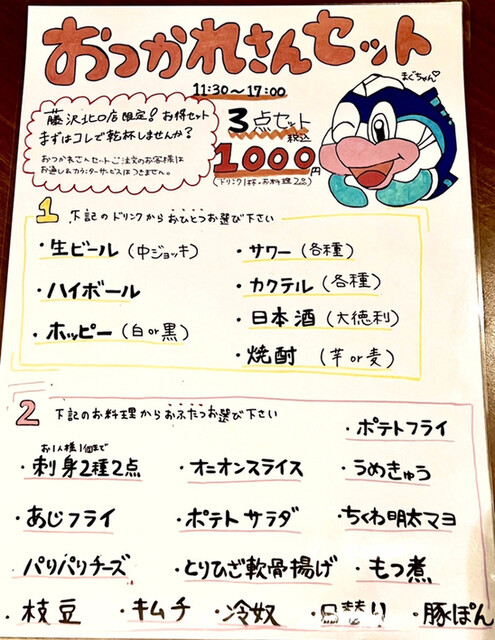 おつかれさんセット
11:30〜17:00
まぐちゃん♡
藤沢北口店限定!お得セット
まずはコレで乾杯しませんか?
おつかれさんセットご注文のお客様は
お通し&カウンターサービスはつきません。
3点セット
税込
1000円
(ドリンク1杯・お料理2品)
1 下記のドリンクからおひとつお選び下さい
・生ビール(中ジョッキ)
・サワー(各種)
・ハイボール
・カクテル(各種)
・ホッピー(白or黒)
・日本酒(大徳利)
・焼酎(芋or麦)
2 下記のお料理からおふたつお選び下さい
・ポテトフライ
お1人様1個まで
・刺身2種2点
・オニオンスライス
・うめきゅう
・あじフライ
・ポテトサラダ
・ちくわ明太マヨ
・パリパリチーズ
・とりひざ軟骨揚げ
・もつ煮
・枝豆
・キムチ
・冷奴
・日替り
・豚ぽん